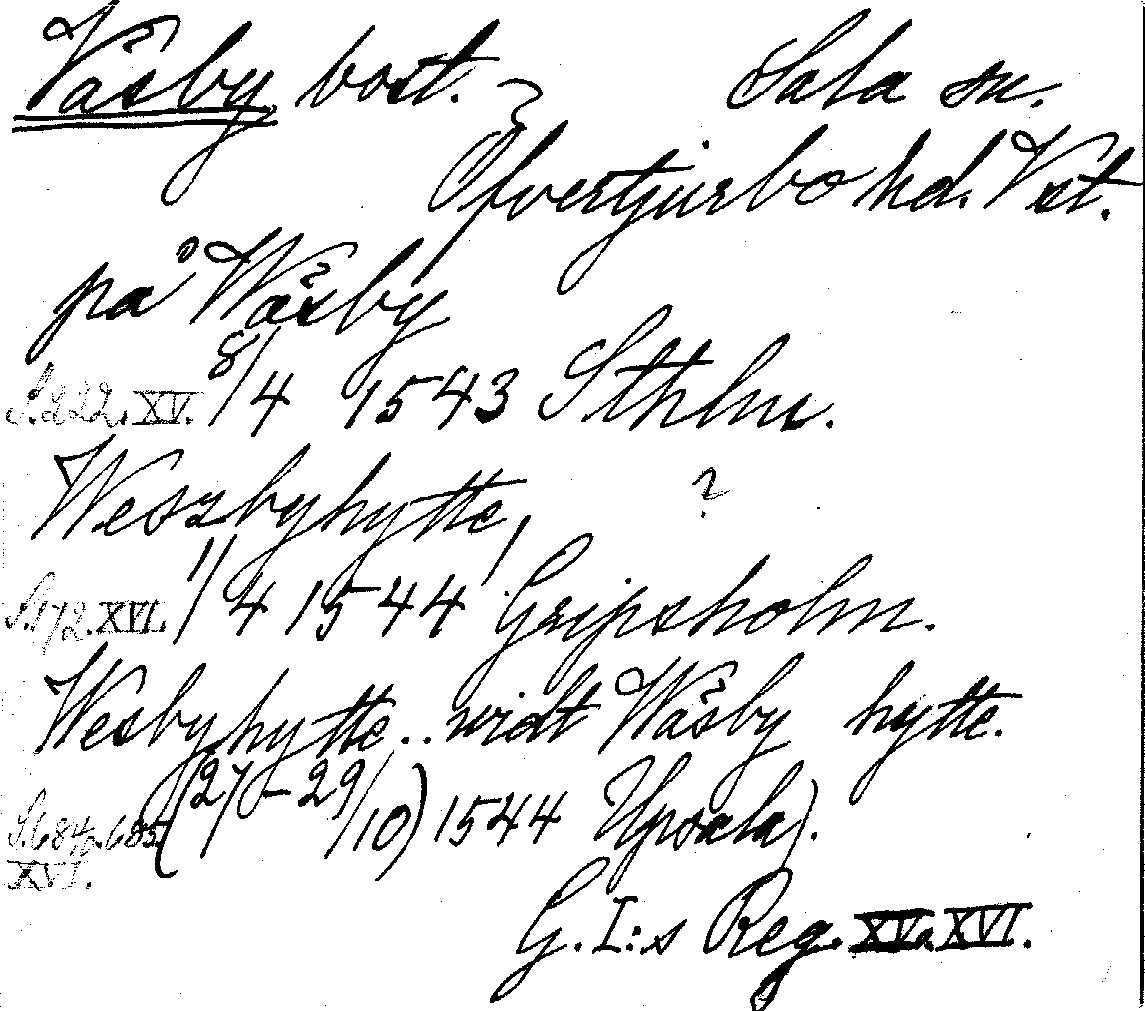 Väsby bost. Sala sn.
Öfvertjurbo hd. Vst.
på Wäsby
S. 222. XV. 8/4 1543 Sthlm.
Weszbyhytte, ?
S. 172. XVI. 1/4 1544 Gripsholm.
Wesbyhytte .. widt Wäsby hytte.
S. 684, 685. (27/ - 29/10) 1544 Upsala).
XVI.
G. I:s Reg. XV. XVI.